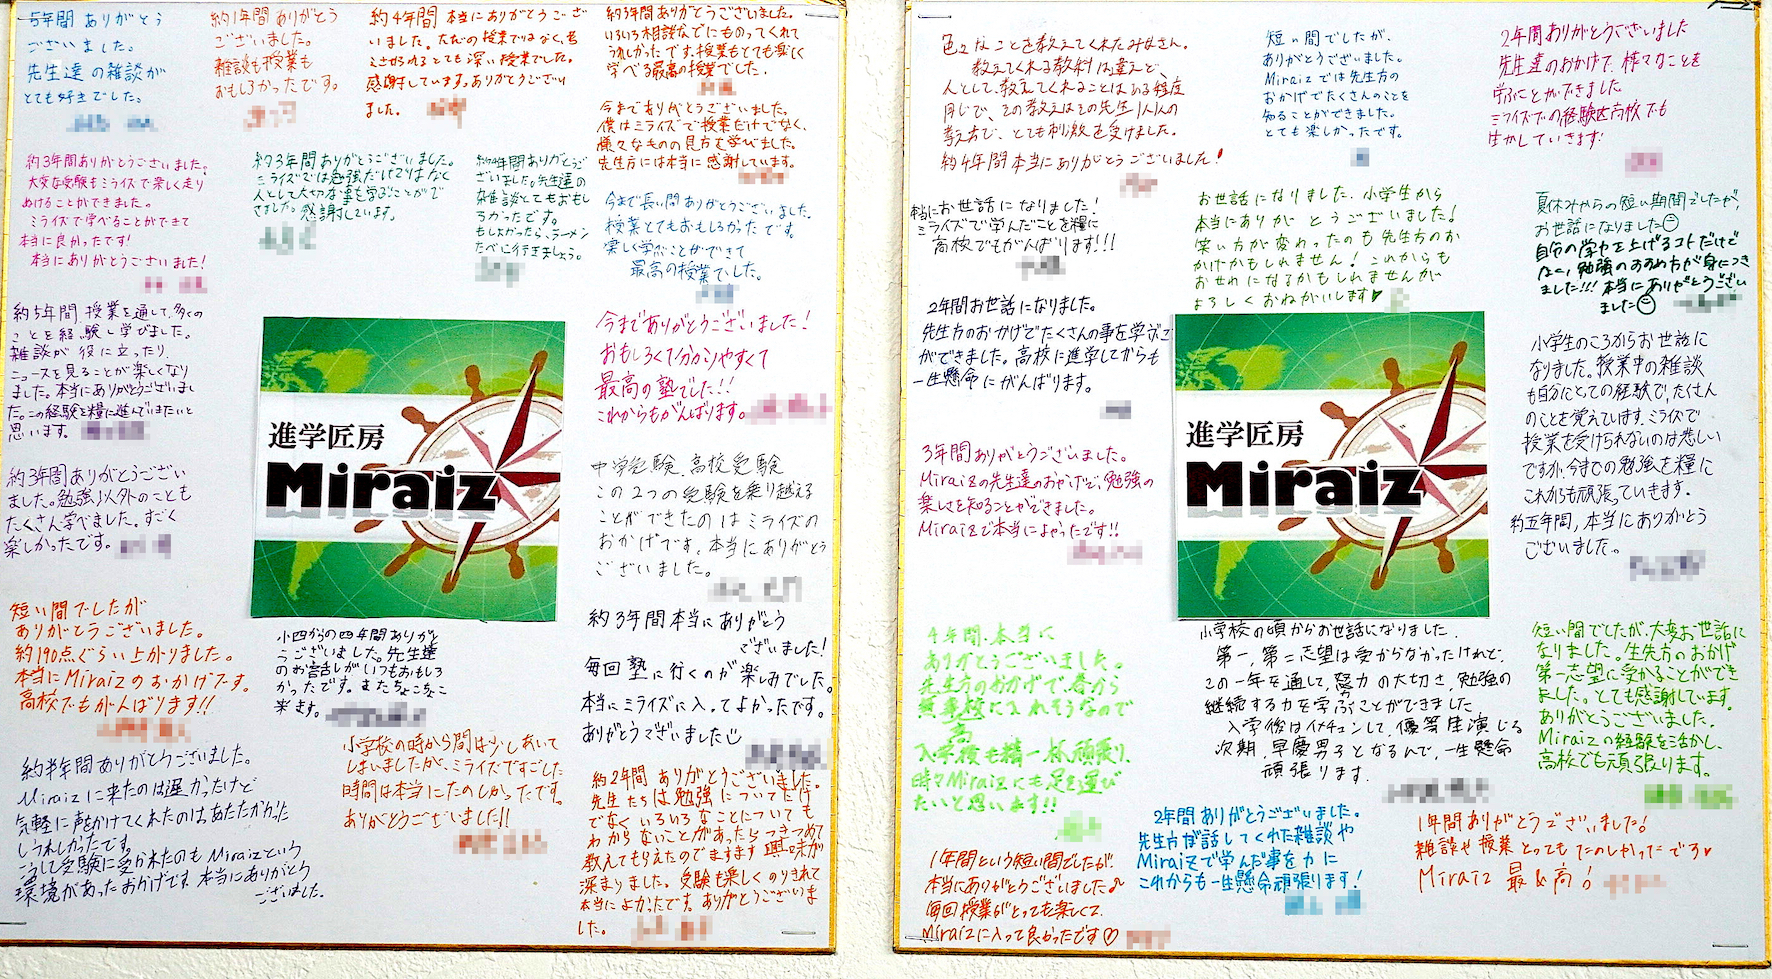 5年間 ありがとう
ございました。
先生達の雑談が
とても好きでした。
約1年間ありがとう
ございました。
雑談も授業も
おもしろかったです。
約4年間 本当にありがとうござ
いました。ただの授業ではなく、考
えさせられるとても深い授業でした。
感謝しています。ありがとうござい
ました。
約3年間ありがとうございました。
いろいろ相談などにものってくれて
うれしかったです。授業もとても楽しく
学べる最高の授業でした。
今までありがとうございました。
僕はミライズで授業だけでなく、
様々なものの見方を学びました。
先生方には本当に感謝しています。
約3年間ありがとうございました。
大変な受験もミライズで楽しく走り
ぬけることができました。
ミライズで学べることができて
本当に良かったです!
本当にありがとうございました!
約3年間ありがとうございました。
ミライズでは勉強だけではなく
人として大切な事を学ぶことがで
きました。感謝しています。
約4年間ありがとうござ
いました。先生達の
雑談とてもおもし
ろかったです。
もしよかったら、ラーメン
たべに行きましょう。
今まで長い間ありがとうございました。
授業とてもおもしろかったです。
楽しく学ぶことができて
最高の授業でした。
約5年間 授業を通して、多くの
ことを経験し学びました。
雑談が役に立ったり、
ニュースを見ることが楽しくなり
ました。本当にありがとうございまし
た。この経験を糧に進んでいきたいと
思います。
今までありがとうございました!
おもしろくて分かりやすくて
最高の塾でした!!
これからもがんばります。
進学匠房
Miraiz
約3年間ありがとうござい
ました。勉強以外のことも
たくさん学べました。すごく
楽しかったです。
中学受験、高校受験
この2つの受験を乗り越える
ことができたのはミライズの
おかげです。本当にありがとう
ございました。
短い間でしたが
ありがとうございました。
約190点ぐらい上がりました。
本当にMiraizのおかげです。
高校でもがんばります!!
小四からの四年間ありがと
うございました。先生達
のお話しがいつもおもしろ
かったです。またちょこちょこ
来ます。
約3年間本当にありがとう
ございました!
毎回 塾に行くのが楽しみでした。
本当にミライズに入ってよかったです。
ありがとうございました
約半年間ありがとうございました。
Miraizに来たのは遅かったけど
気軽に声かけてくれたのはあたたかかった
しうれしかったです。
こうして受験に受かれたのもMiraizという
環境があったおかげです。本当にありがとう
ございました。
小学校の時から間は少しあいて
しまいましたが、ミライズですごした
時間は本当にたのしかったです。
ありがとうございました!!
約2年間 ありがとうございました。
先生たちは勉強についてだけ
でなく いろいろなことについても
わからないことがあったらつきつめて
教えてもらえたのでますます興味が
深まりました。受験も楽しくのりきれて
本当によかったです。ありがとうございま
した。
色々なことを教えてくれたみなさん。
教えてくれる教科は違えど、
人として、教えてくれることはある程度
同じで、その教えはその先生1人1人の
考え方で、とても刺激を受けました。
約4年間本当にありがとうございました!
短い間でしたが、
ありがとうございました。
Miraizでは先生方の
おかげでたくさんのことを
知ることができました。
とても楽しかったです。
2年間ありがとうございました
先生達のおかげで、様々なことを
学ぶことができました
ミライズでの経験を高校でも
生かしていきます!
本当にお世話になりました!
ミライズで学んだことを糧に
高校でもがんばります!!!
お世話になりました、小学生から
本当にありがとうございました!
笑い方が変わったのも先生方のお
かげかもしれません!これからも
おせわになるかもしれませんが
よろしくおねがいします♥
夏休みからの短い期間でしたが、
お世話になりました☺
自分の学力を上げるコトだけで
なく、勉強のすすめ方が身につき
ました!!!本当にありがとうござい
ました☺
2年間お世話になりました。
先生方のおかげでたくさんの事を学ぶこと
ができました。高校に進学してからも
一生懸命にがんばります。
小学生のころからお世話に
なりました。授業中の雑談
も自分にとっての経験で、たくさん
のことを覚えています。ミライズで
授業を受けられないのは悲しい
ですが、今までの勉強を糧に
これからも頑張っていきます。
約五年間、本当にありがとう
ございました。
3年間ありがとうございました。
Miraizの先生達のおかげで、勉強の
楽しさを知ることができました。
Miraizで本当によかったです!!
進学匠房
Miraiz
4年間、本当に
ありがとうございました。
先生方のおかげで、春から
無事高校に入れそうなので
入学後も精一杯頑張り、
時々Miraizにも足を運び
たいと思います!!
小学校の頃からお世話になりました。
第一、第二志望は受からなかったけれど、
この一年を通して、努力の大切さ、勉強の
継続する力を学ぶことができました
入学後はイメチェンして、優等生演じる
次期、早慶男子となるんで、一生懸命
頑張ります。
短い間でしたが、大変お世話に
なりました。先生方のおかげ
第一志望に受かることができ
ました。とても感謝しています。
ありがとうございました。
Miraizの経験を活かし、
高校でも頑張ります。
1年間という短い間でしたが、
本当にありがとうございました♪
毎回授業がとっても楽しくて、
Miraizに入って良かったです♡
2年間ありがとうございました。
先生方が話してくれた雑談や
Miraizで学んだ事を力に
これからも一生懸命頑張ります!
1年間ありがとうございました!
雑談や授業とってもたのしかったです♥
Miraiz 最&高!